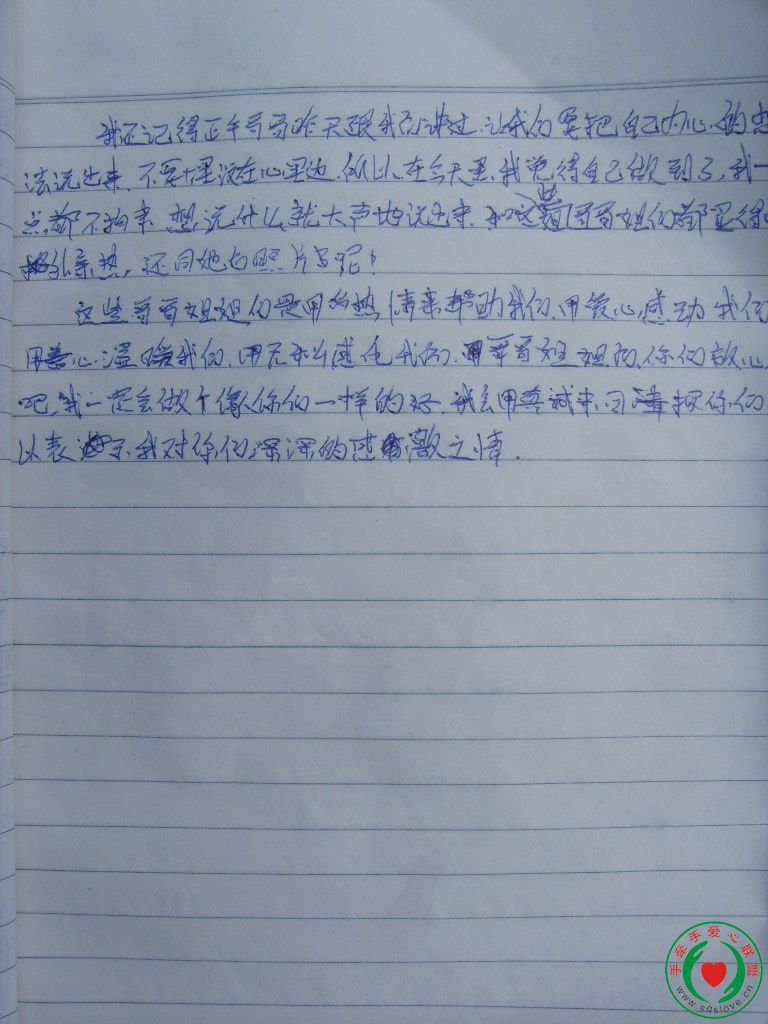 我还记得正午哥哥昨天跟我们讲过,让我们要把自己内心的想
法说出来,不要埋没在心里边,所以,在今天里,我觉得自己做到了,我一
点都不拘束,想说什么就大声地说出来,和这些哥哥姐姐们都显得
亲热,还同她们照片呢!
这些哥哥姐姐们是用的热情来帮助我们,用爱心感动我们
用善心温暖我们,用无私感化我们,哥哥姐姐们,你们放心
吧,我一定会做个像你们一样的好,我会用真诚来回报你们
以表示我对你们深深的感激之情.
手牵手爱心联盟
www.sqslove.cn